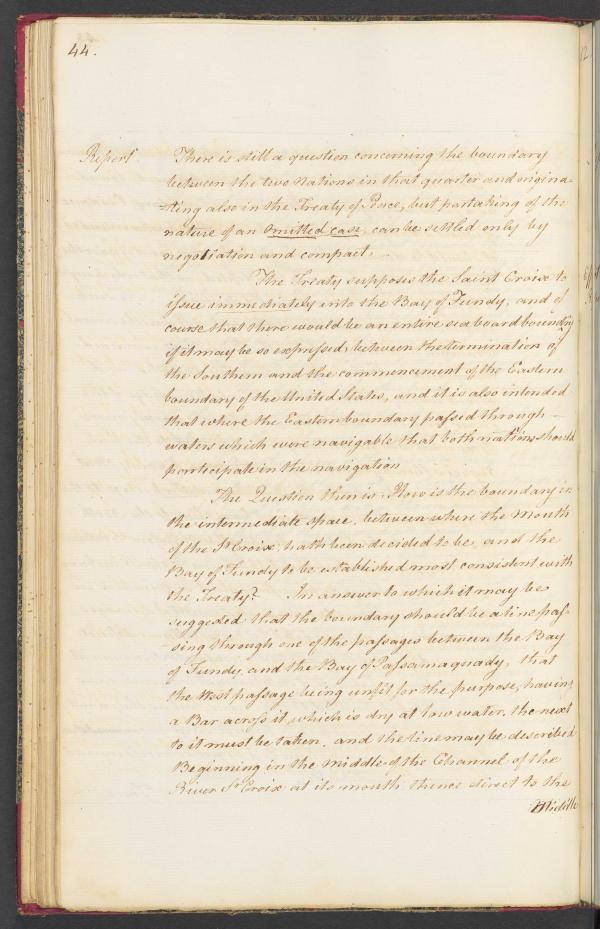 44.
Report There is still a question concerning the boundary
between the two Nations in that quarter and origina-
-ting also in the Treaty of Peace, but partaking of the
nature of an omitted case, can be settled only by
negotiation and compact.
The Treaty supposes the Saint Croix to
issue immediately into the Bay of Fundy, and of
course that there would be an entire sea board bounding
if it may be so expressed, between the termination of
the Southern and the commencement of the Eastern
boundary of the United States, and it is also intended
that where the Eastern boundary passed through -
waters which were navigable that both nations should
porrticipate in the navigation
The Question then is, How is the boundary in
the intermediate space, between where the Mouth
of the St Croix, hath been decided to be, and the
Bay of Fundy to be established most consistent with
the Treaty? In answer to which it may be
suggested that the boundary should be a line pas-
-sing through one of the passages between the Bay
of Fundy, and the Bay of Passamaquady, that
the West passage being unfit for the purpose, having
a Bar across it, which is dry at low water, the next
to it must be taken, and the line may be described
Beginning in the Middle of the Channel of the
River St Croix at its mouth thence direct to the
Middle